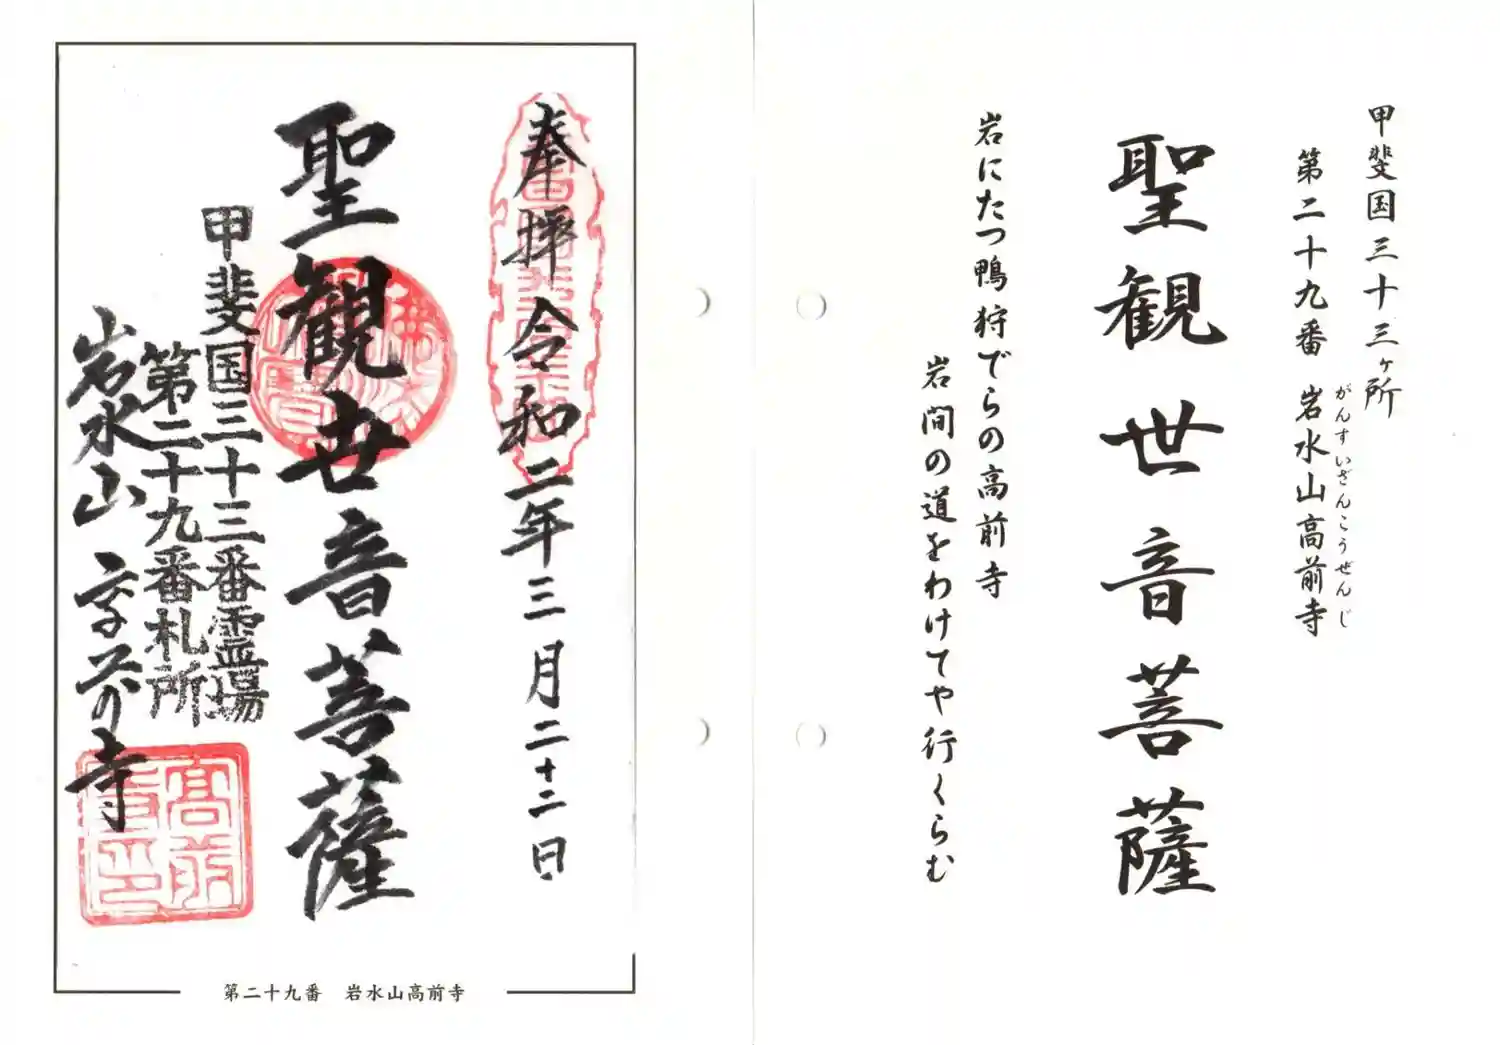 甲斐国三十三ヶ所
第二十九番 岩水山高前寺
がんすいざんこうぜんじ
聖観世音菩薩
岩にたつ鴨狩でらの高前寺
岩間の道をわけてや行くらむ
奉拝 令和二年三月二十二日
聖観世音菩薩
甲斐国三十三番霊場
第二十九番札所
岩水山 高前寺
高前寺印
第二十九番 岩水山高前寺